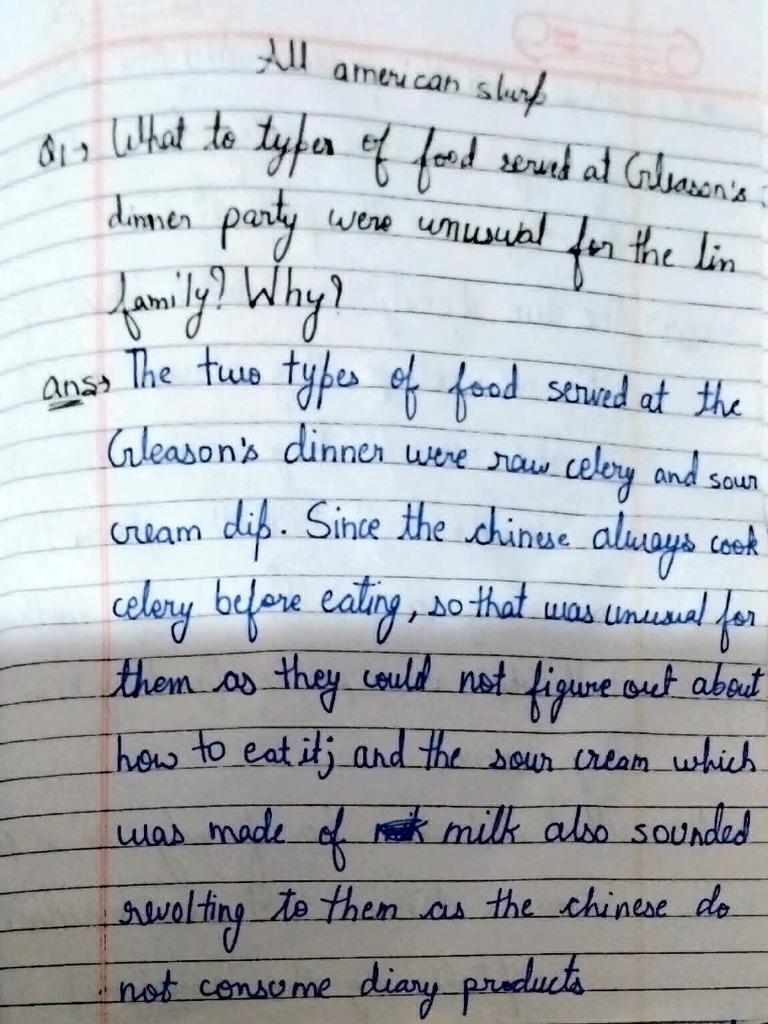 All american slurp
Q1→ What to types of food served at Gleason's
dinner party were unusual for the lin
family? Why?
ans→ The two types of food served at the
Gleason's dinner were raw celery and sour
cream dip. Since the chinese always cook
celery before eating, so that was unusual for
them as they could not figure out about
how to eat it; and the sour cream which
was made of milk also sounded
revolting to them as the chinese do
not consume diary products